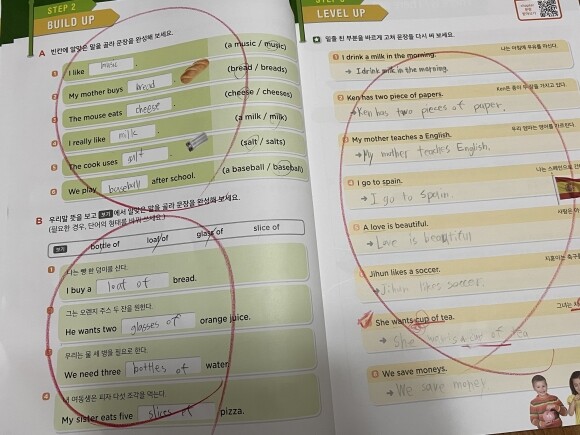 STEP 2
BUILD UP
A 빈칸에 알맞은 말을 골라 문장을 완성해 보세요.
1 I like music. (a music / music)
2 My mother buys bread. (bread / breads)
3 The mouse eats cheese. (cheese / cheeses)
4 I really like milk. (a milk / milk)
5 The cook uses salt. (salt / salts)
6 We play baseball after school. (a baseball / baseball)
B 우리말 뜻을 보고 보기에서 알맞은 말을 골라 문장을 완성해 보세요.
(필요한 경우, 단어의 형태를 바꿔 쓰세요.)
보기 bottle of loaf of glass of slice of
1 나는 빵 한 덩이를 산다.
I buy a loaf of bread.
2 그는 오렌지 주스 두 잔을 원한다.
He wants two glasses of orange juice.
3 우리는 물 세 병을 필요로 한다.
We need three bottles of water.
4 내 여동생은 피자 다섯 조각을 먹는다.
My sister eats five slices of pizza.
LEVEL UP
밑줄 친 부분을 바르게 고쳐 문장을 다시 써 보세요.
1 I drink a milk in the morning. 나는 아침에 우유를 마신다.
→ I drink milk in the morning.
2 Ken has two piece of papers. Ken은 종이 두 장을 가지고 있다.
→ Ken has two pieces of paper.
3 My mother teaches a English. 우리 엄마는 영어를 가르친다.
→ My mother teaches English.
4 I go to spain. 나는 스페인으로
→ I go to Spain.
5 A love is beautiful. 사랑은
→ Love is beautiful
6 Jihun likes a soccer. 지훈이는 축구를
→ Jihun likes soccer.
7 She wants cup of tea. 그녀는
→ She wants a cup of tea
8 We save moneys.
→ We save money